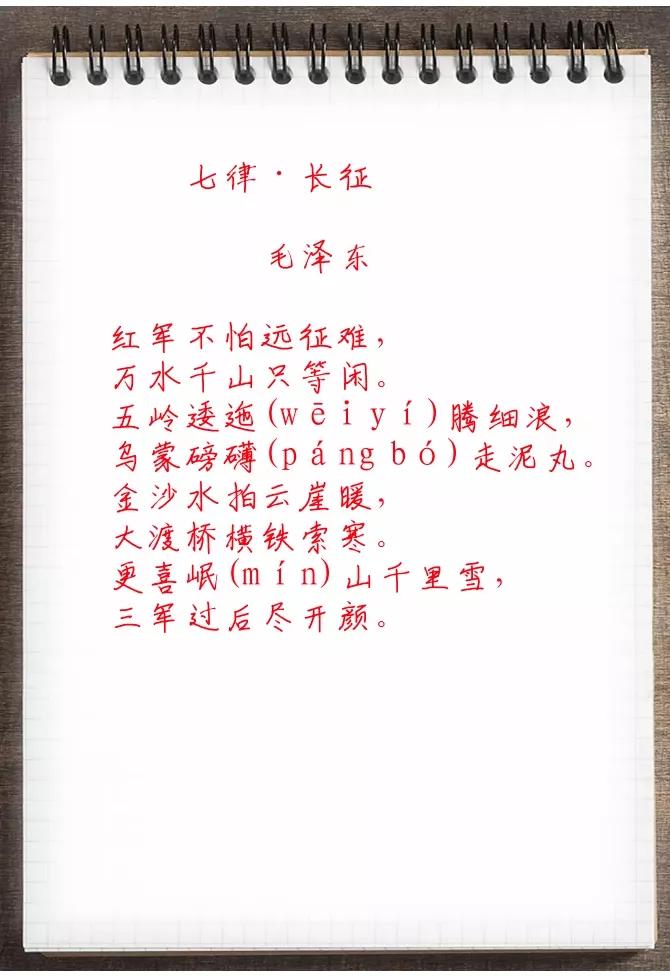 七律·长征
毛泽东
红军不怕远征难，
万水千山只等闲。
五岭逶迤(wēiyí)腾细浪，
乌蒙磅礴(pángbó)走泥丸。
金沙水拍云崖暖，
大渡桥横铁索寒。
更喜岷(mín)山千里雪，
三军过后尽开颜。